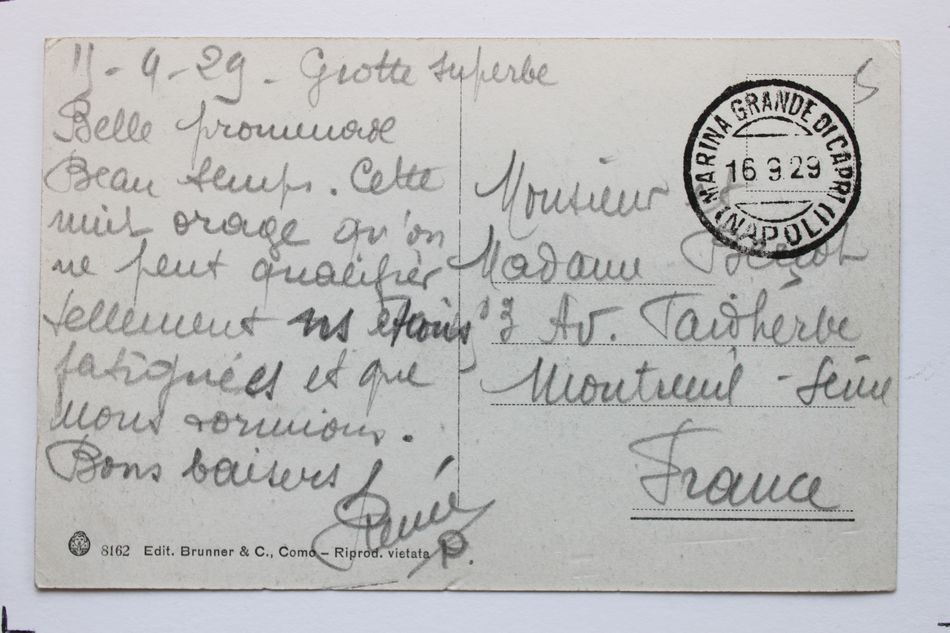 15-9-29. Grotte superbe
Belle promenade
Beau temps. Cette
nuit orage qu'on
ne peut qualifier
tellement ns étions
fatiguées et que
nous dormions.
Bons baisers
Renée
P.
Monsieur
Madame
13 Av. Faidherbe
Montreuil - Seine
France
MARINA GRANDE DI CAPRI
16 9 29
(NAPOLI)
8162 Edit. Brunner & C., Como – Riprod. vietata